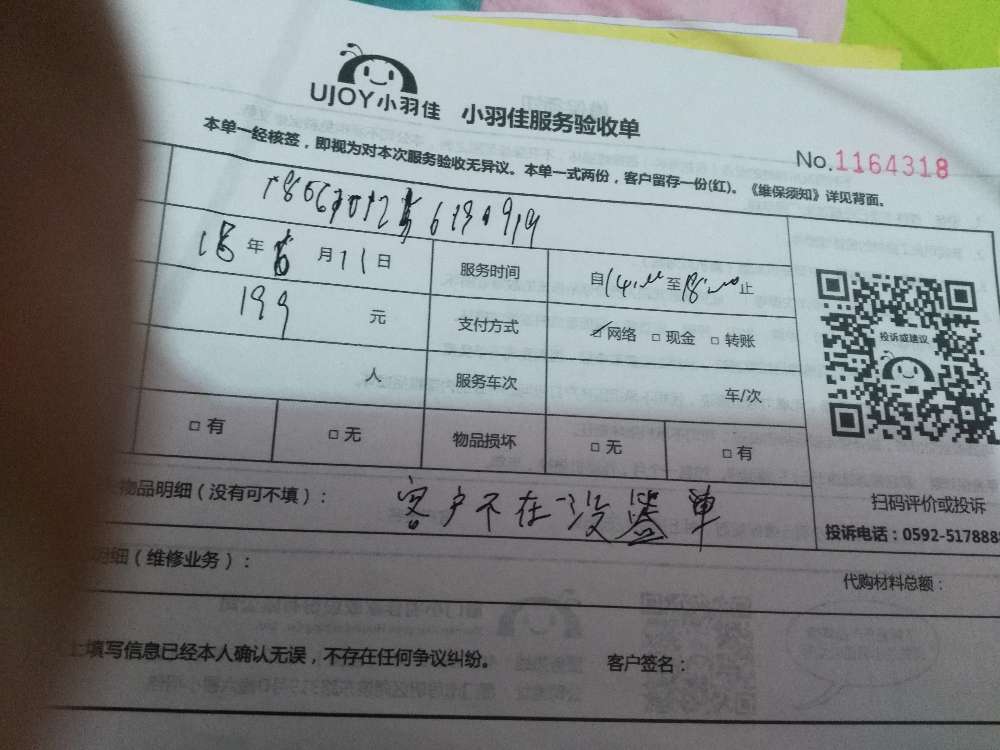 UJOY小羽佳 小羽佳服务验收单
No.1164318
本单一经核签，即视为对本次服务验收无异议。本单一式两份，客户留存一份(红)。《维保须知》详见背面。
年 月11日 服务时间 自 至 止
199 元 支付方式 ☑网络 □现金 □转账
投诉或建议
人 服务车次 车/次
□有 □无 物品损坏 □无 □有
扫码评价或投诉
物品明细（没有可不填）： 客户不在没签单
投诉电话：0592-517888
明细（维修业务）： 代购材料总额：
上填写信息已经本人确认无误，不存在任何争议纠纷。 客户签名：